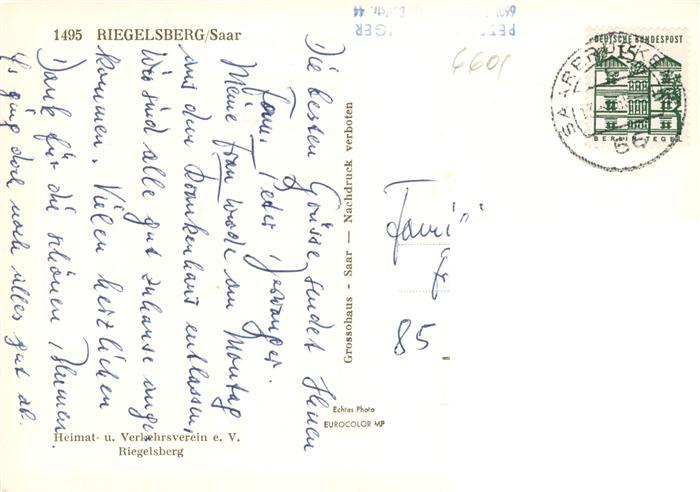 1495 RIEGELSBERG/Saar
Die besten Grüsse sendet Ihnen
Fam. Peter
Meine Frau wurde am Montag
aus dem Krankenhaus entlassen,
Wir sind alle gut zuhause ange-
kommen. Vielen herzlichen
Dank für die schönen Blumen.
Es ging doch noch alles gut ab.
Heimat- u. Verkehrsverein e. V.
Riegelsberg
Grossohaus - Saar — Nachdruck verboten
Echtes Photo
EUROCOLOR MP
6601
DEUTSCHE BUNDESPOST
15
BERLIN-TEGEL
SAARBRÜCKEN
66
Fami
85